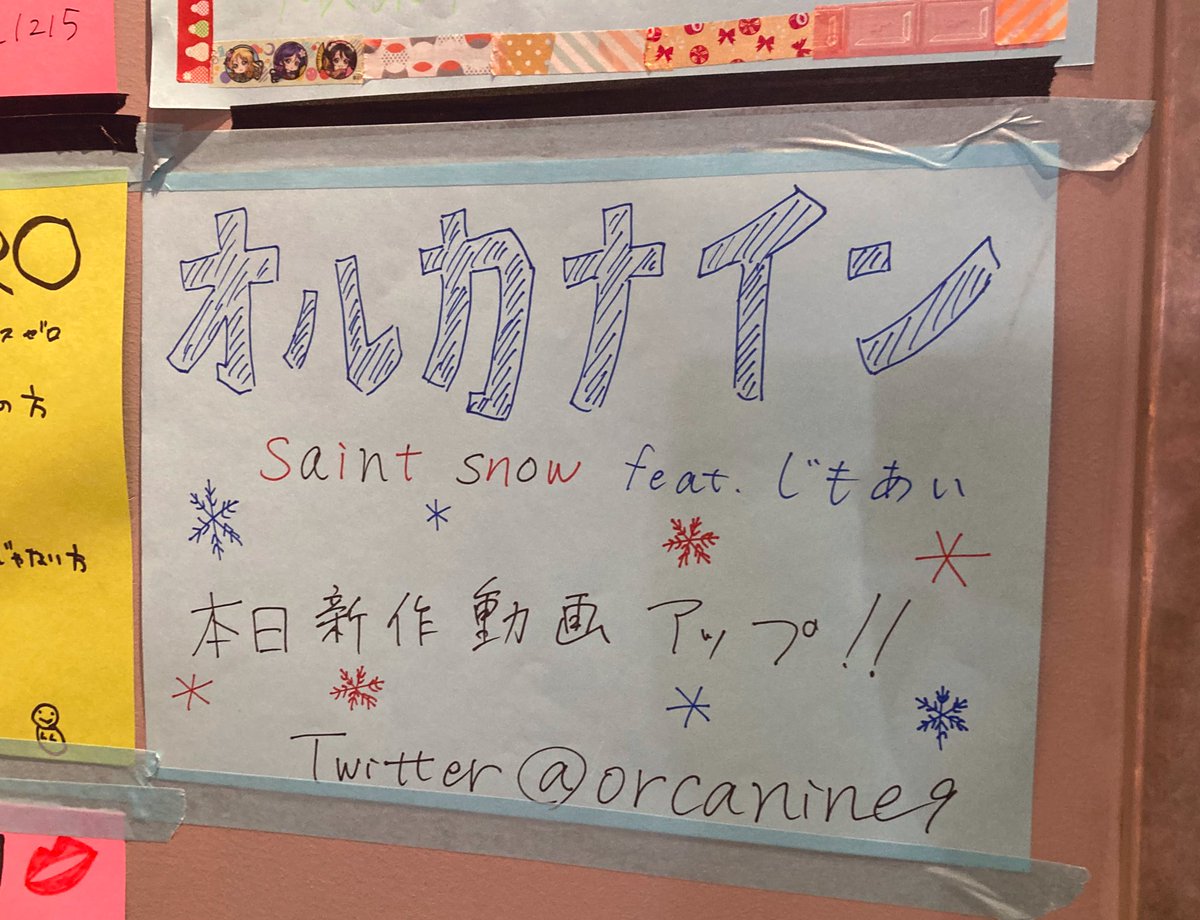 1215
オルカナイン
Saint snow feat. じもあい
本日新作動画アップ!!
Twitter@orcanine9
RO
スゼロ
の方
じゃない方